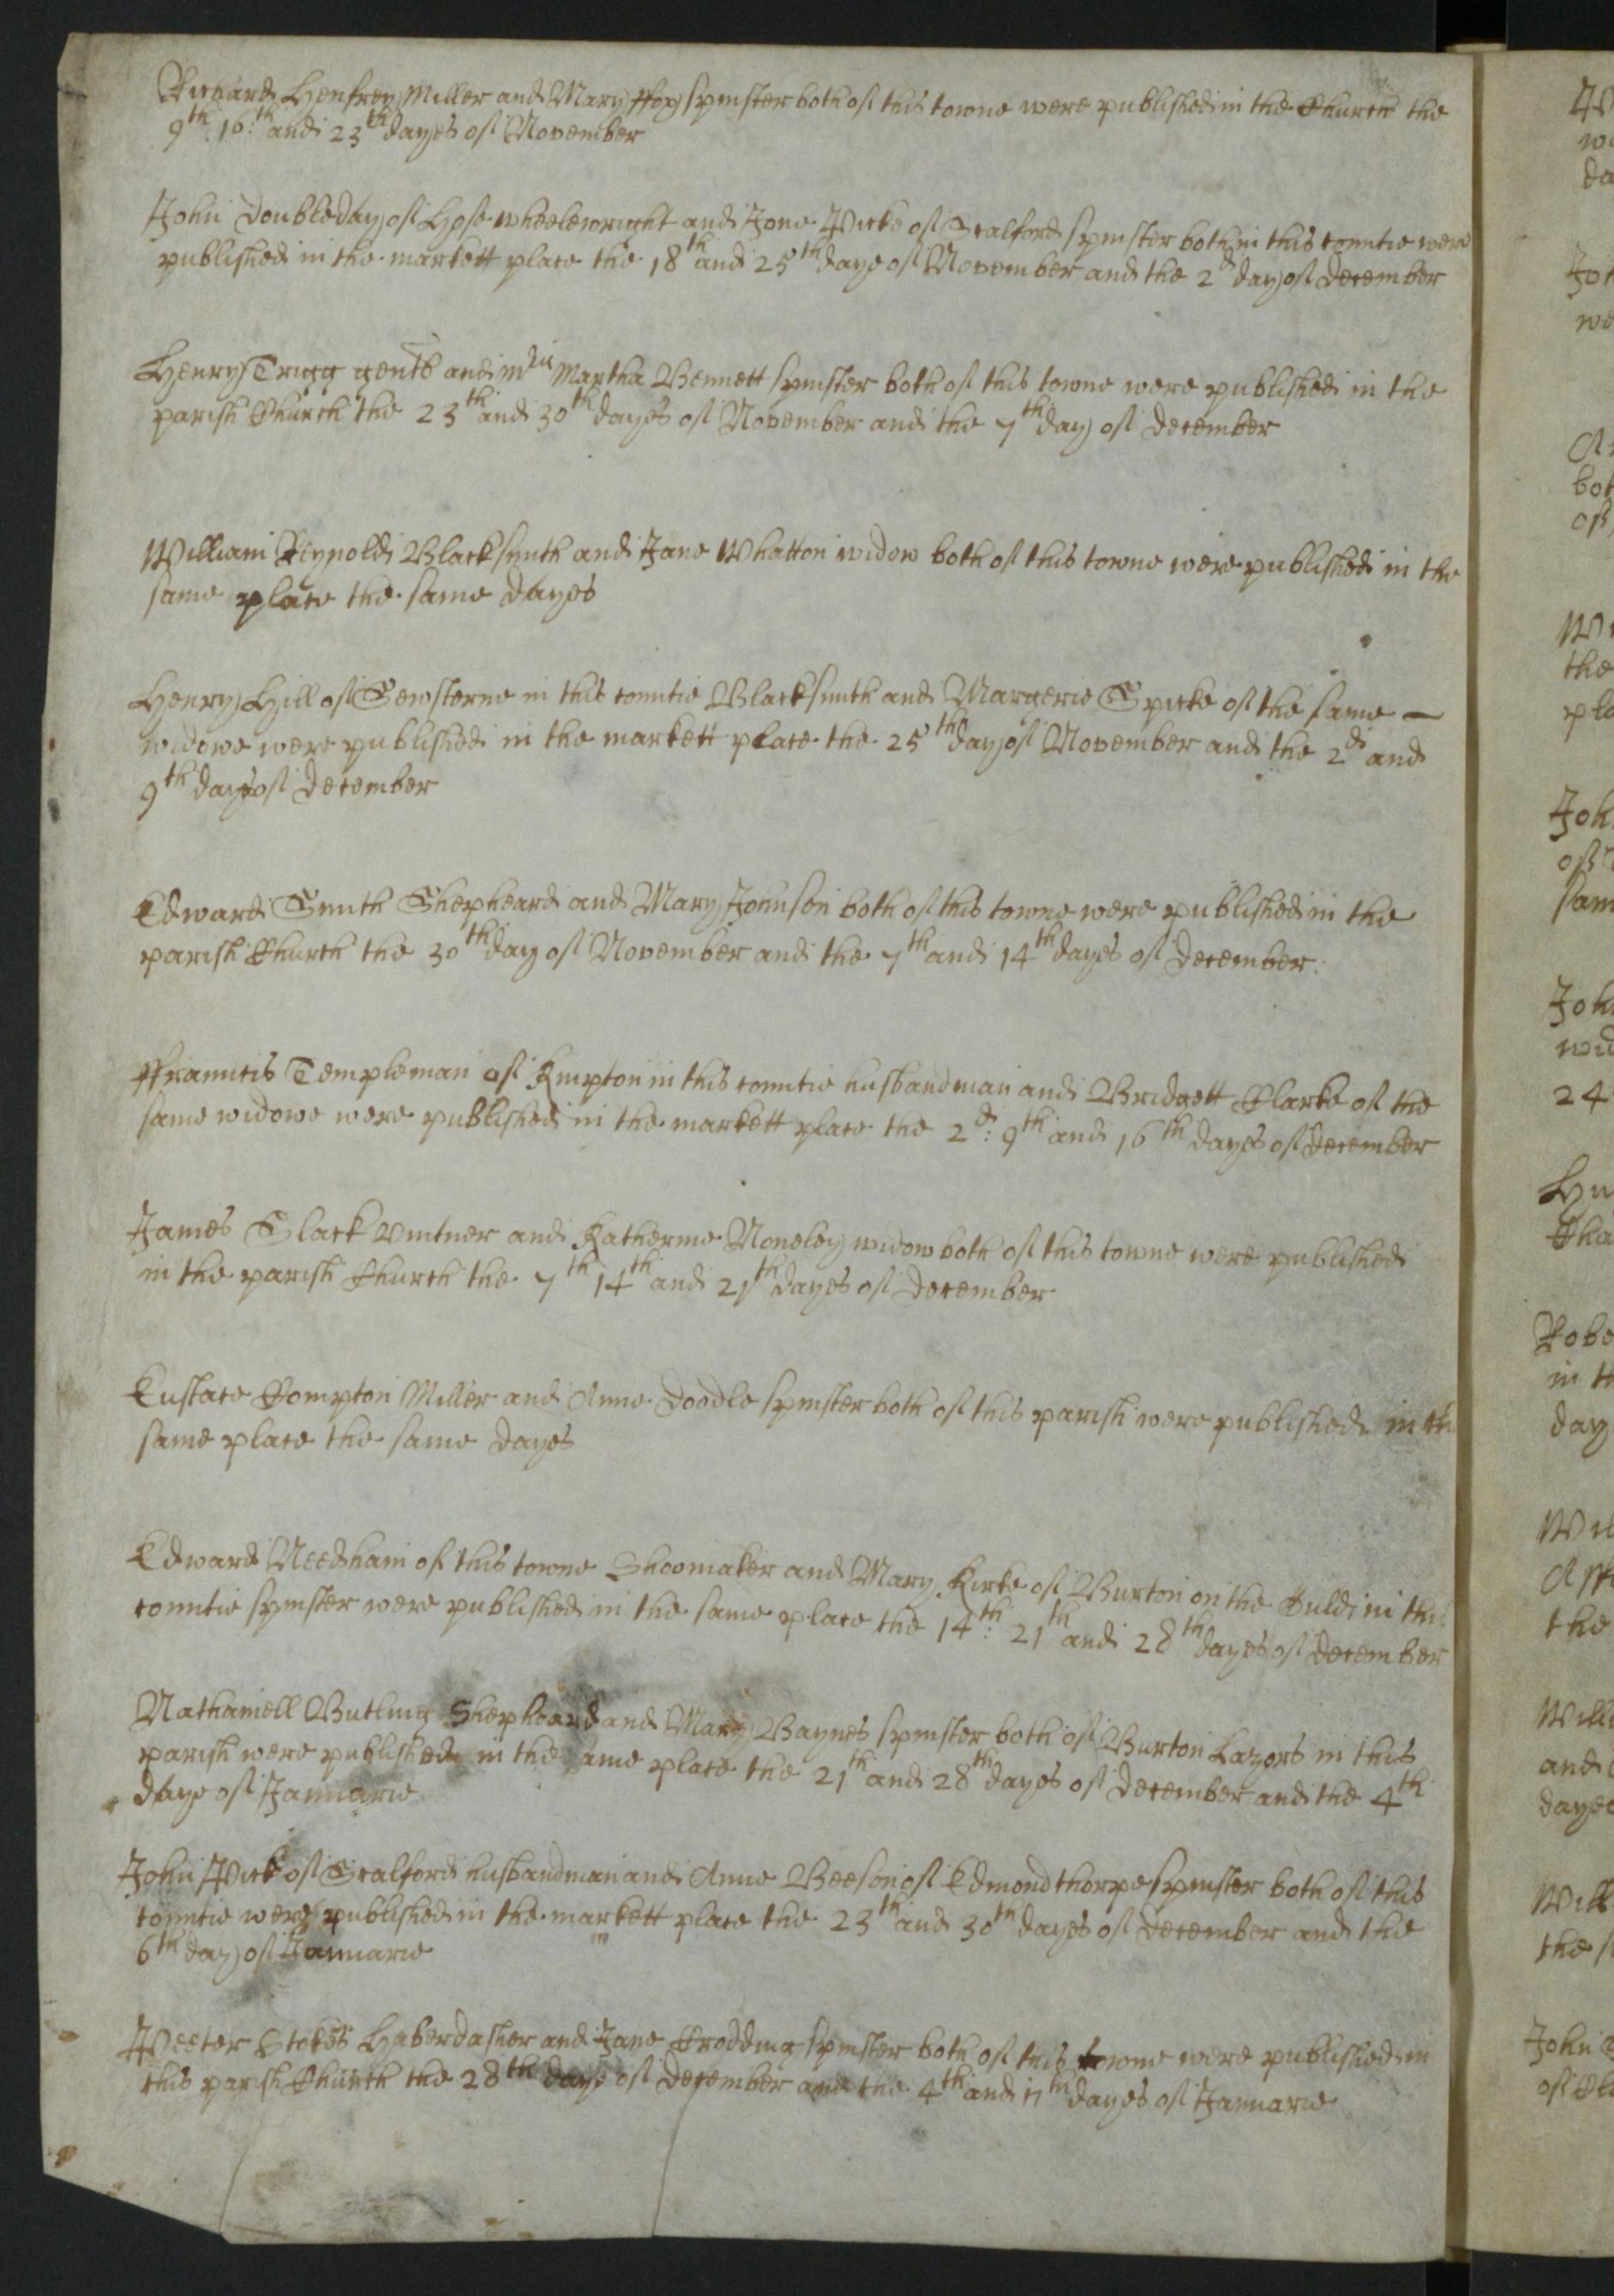 Richard Henfrey Miller and Mary ffox spinster both of this towne were published in the Church the
9th: 16:th and 23th dayes of November
John Doubleday of Hose wheelewright and Jone Picke of Scalford spinster both in this countie were
published in the markett place the 18th and 25th daye of November and the 2d day of December
Henry Trigg gent and mris Martha Bennett spinster both of this towne were published in the
parish Church the 23th and 30th dayes of November and the 7th day of December
William Reynolds Blacksmith and Jane Whatton widow both of this towne were published in the
same place the same dayes
Henry Hill of Sewsterne in this countie Blacksmith and Margerie Spicke of the same —
widowe were published in the markett place the 25th day of November and the 2d and
9th dayes of December
Edward Smith Shepheard and Mary Johnson both of this towne were published in the
parish Church the 30th day of November and the 7th and 14th dayes of December.
ffranncis Templeman of Knipton in this countie husbandman and Bridgett Clarke of the
same widowe were published in the markett place the 2d: 9th and 16th dayes of December
James Slack vintner and Katherine Noneley widow both of this towne were published
in the parish Church the 7th 14th and 21th dayes of December
Eustace Compton Miller and Anne Doodle spinster both of this parish were published in the
same place the same dayes
Edward Needham of this towne Shoomaker and Mary Kirke of Burton on the Ould in this
countie spinster were published in the same place the 14th: 21th and 28th dayes of December
Nathaniell Butling Shepheard and Mary Baynes spinster both of Burton Lazors in this
parish were published in the same place the 21th and 28th dayes of December and the 4th
daye of Januarie
John Pick of Scalford husbandman and Anne Beeson of Edmondthorpe spinster both of this
countie were published in the markett place the 23th and 30th dayes of December and the
6th day of Januarie
Peeter Stokes Haberdasher and Jane Brodding spinster both of this towne were published in
this parish Church the 28th daye of December and the 4th and 11th dayes of Januarie